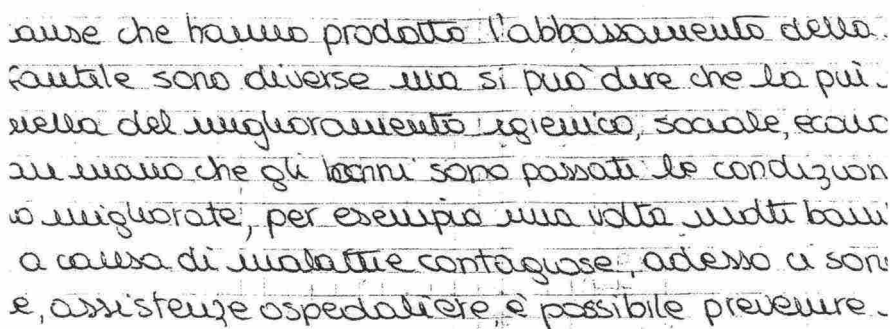 ause che hanno prodotto l'abbassamento della
fantile sono diverse ma si può dire che la pui
nella del miglioramento igienico, sociale, econo
an mano che gli hanni sono passati le condizion
o migliorate, per esempio una volta molti bam
a causa di malattie contagiose, adesso ci son
e, assistenze ospedaliere, è possibile prevenire